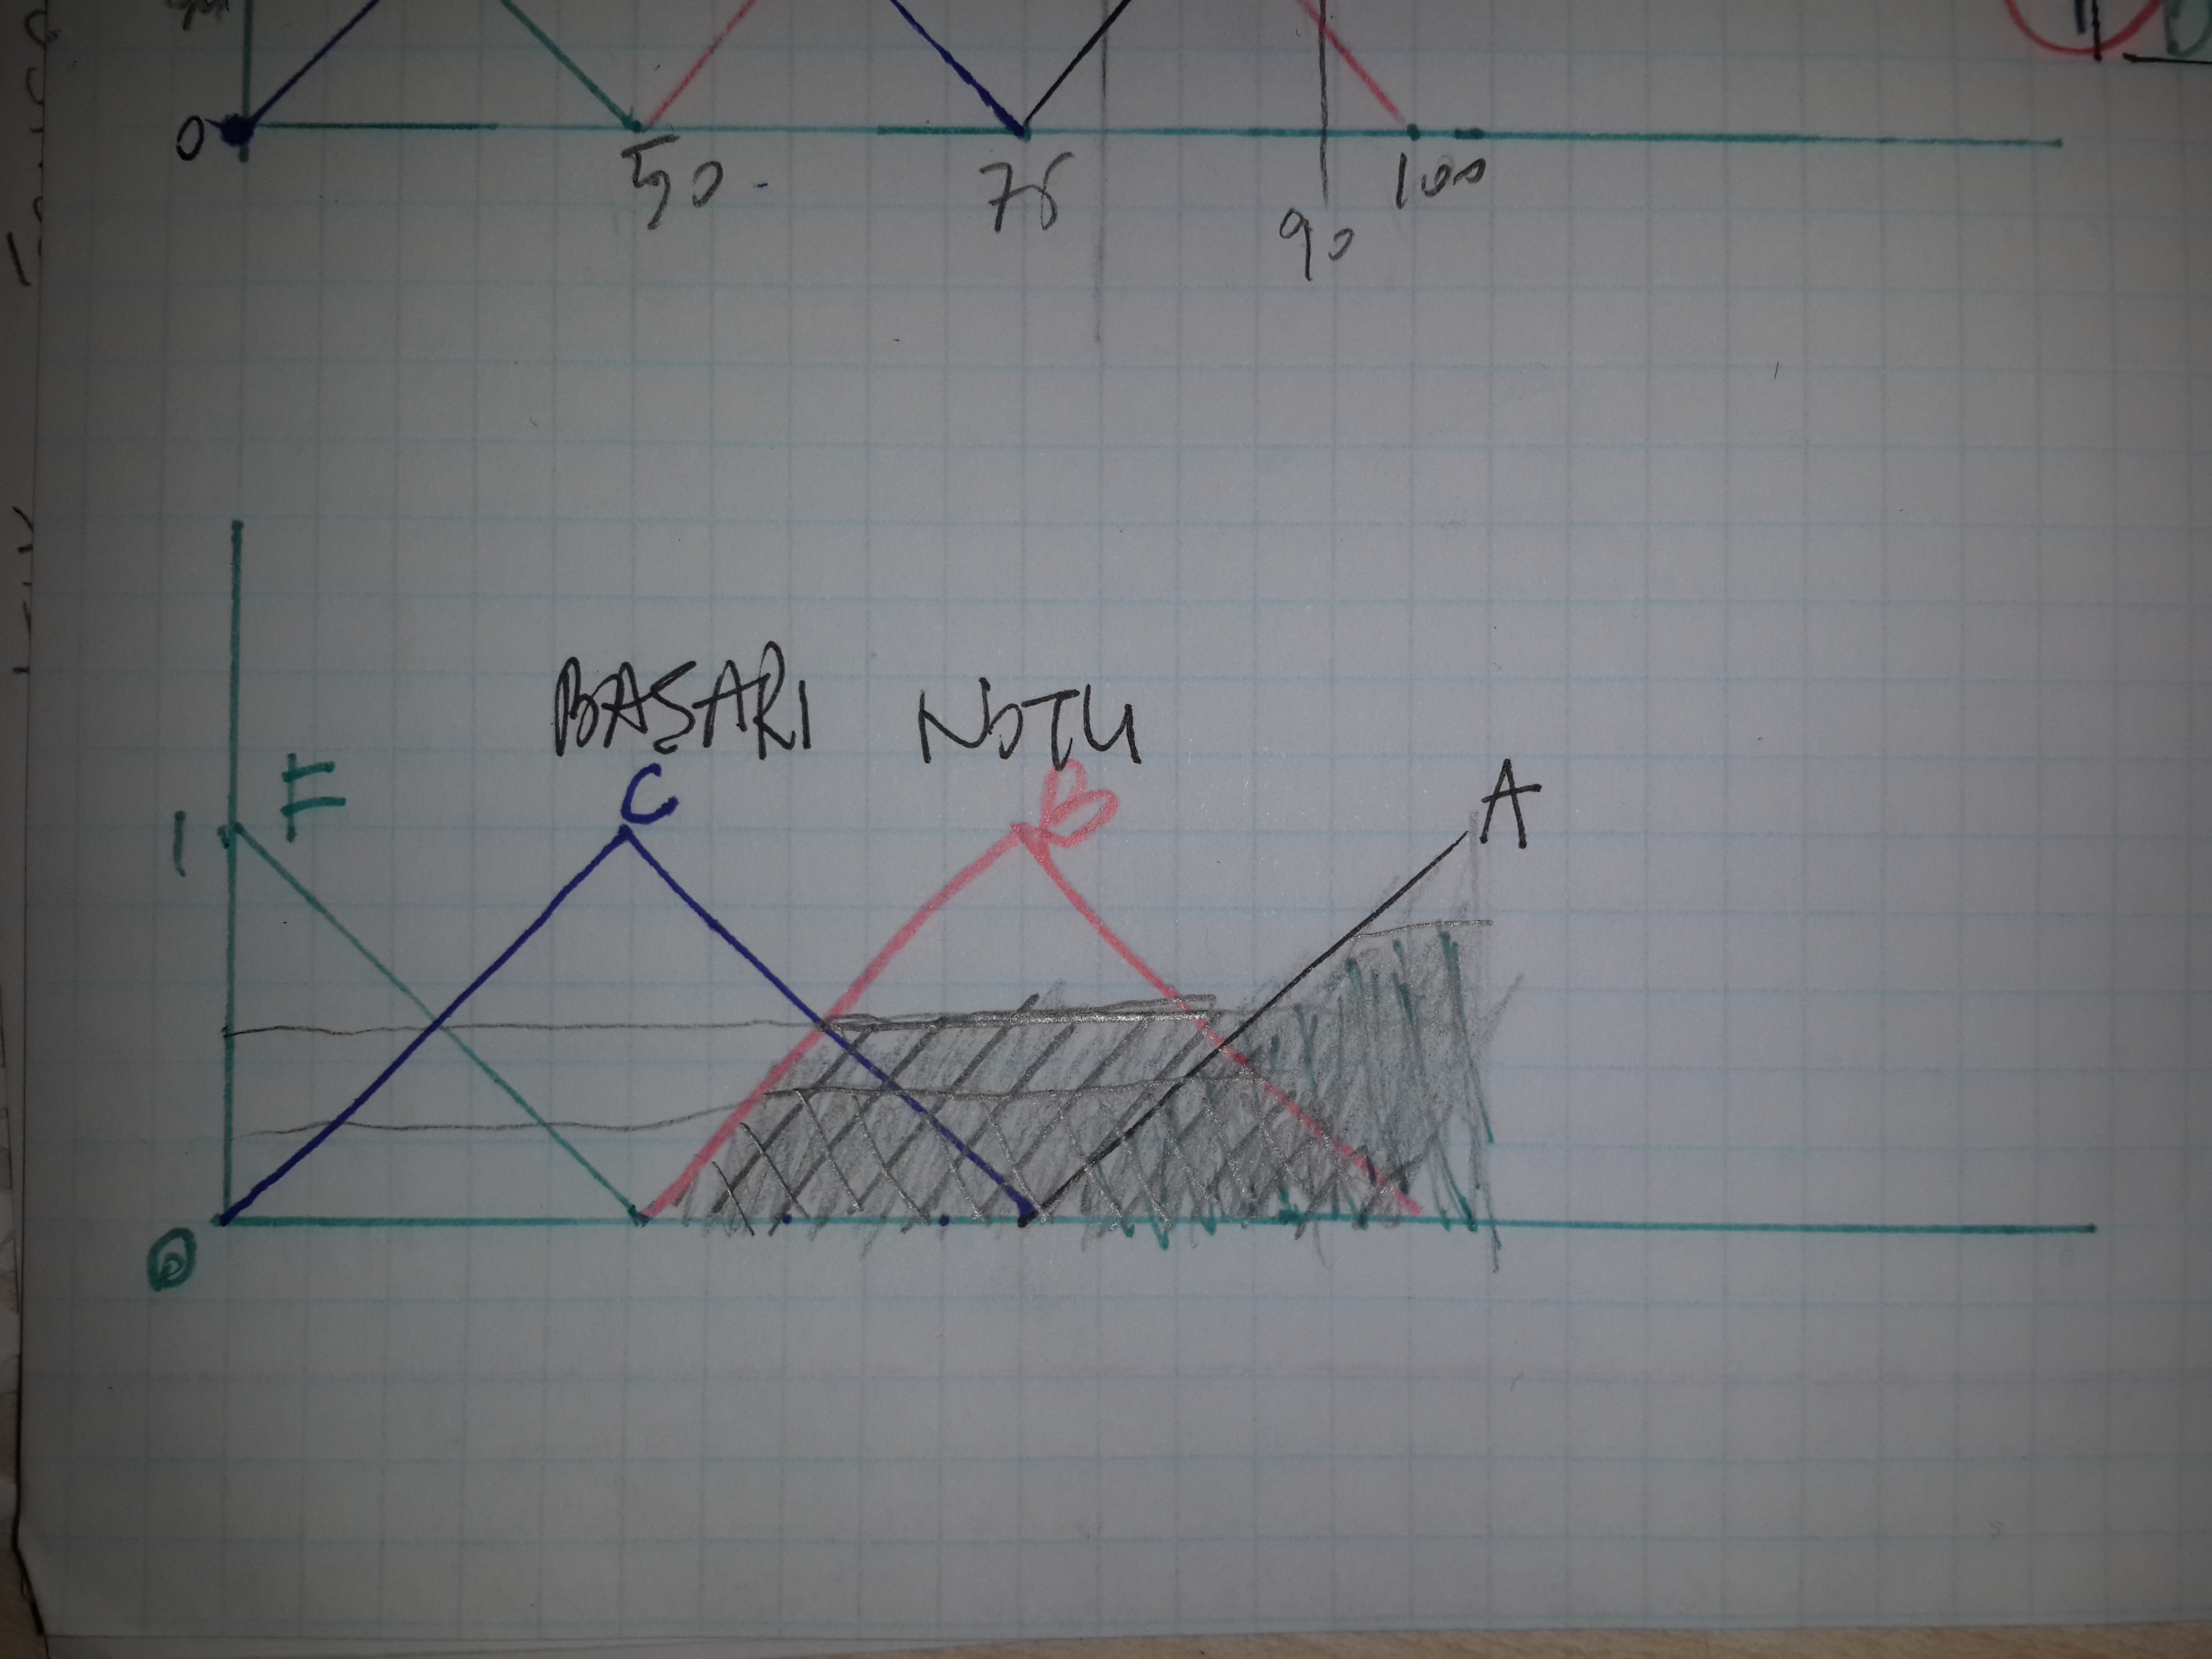 0
50 75 100
90
BAŞARI NOTU
1 F C B A
0